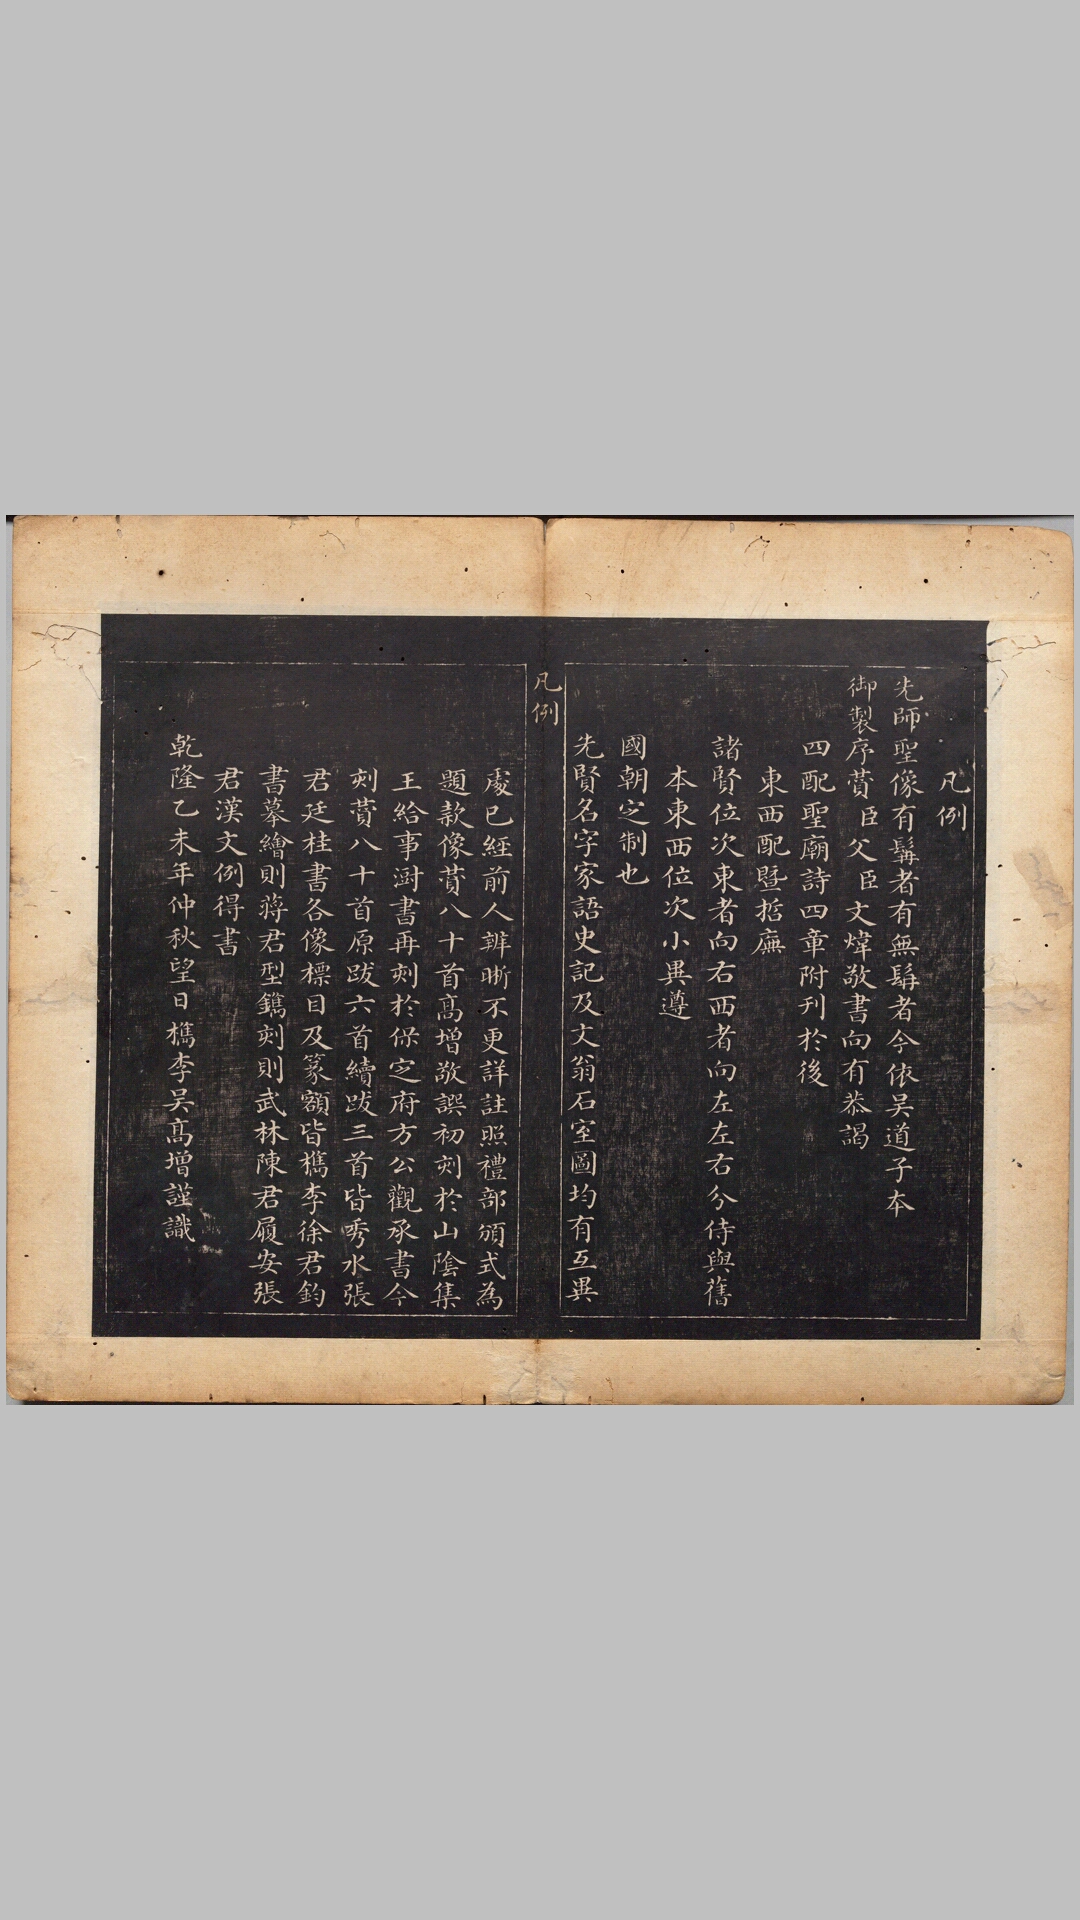 凡例
先師聖像有鬚者有無鬚者今依吴道子本
御製序賛臣父臣文煒敬書向有恭謁
四配聖廟詩四章附刊於後
東西配暨哲廡
諸賢位次東者向右西者向左左右分侍與舊
本東西位次小異遵
國朝定制也
先賢名字家語史記及文翁石室圖均有互異
凡例
處已經前人辨晰不更詳註照禮部頒式為
題款像賛八十首高增敬譔初刻於山陰集
王給事澍書再刻於保定府方公觀承書今
刻賛八十首原跋六首續跋三首皆秀水張
君廷桂書各像標目及篆額皆檇李徐君鈞
書摹繪則蔣君型鐫刻則武林陳君履安張
君漢文例得書
乾隆乙未年仲秋望日檇李吴高增謹識